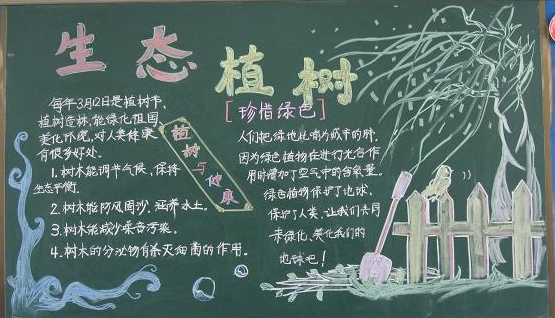 生态植树
每年3月12日是植树节,
植树造林,能绿化祖国
美化环境,对人类健康
有很多好处。
1.树木能调节气候,保持
生态平衡。
2.树木能防风固沙,涵养水土。
3.树木能减少噪音污染。
4.树木的分泌物有杀灭细菌的作用。
植树与健康
[珍惜绿色]
人们把绿地比喻为城市的肺,
因为绿色植物在进行光合作
用时增加了空气中的含氧量。
绿色植物保护了地球,
保护了人类,让我们共同
来绿化、美化我们的
地球吧!